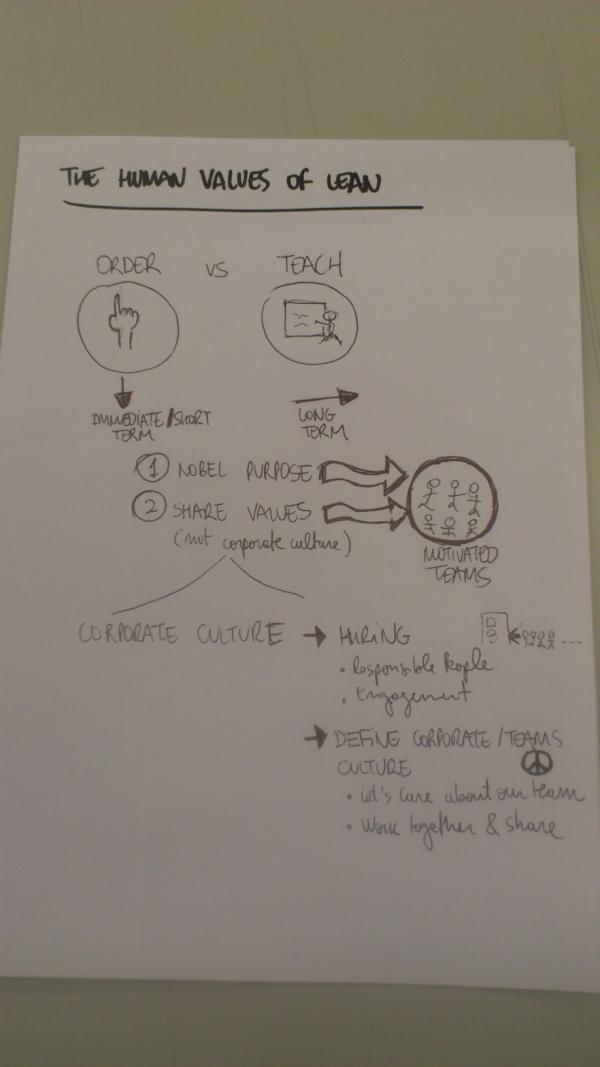 THE HUMAN VALUES OF LEAN
ORDER VS TEACH
IMMEDIATE/SHORT
TERM
LONG
TERM
1 NOBEL PURPOSE
2 SHARE VALUES
(not corporate culture)
MOTIVATED
TEAMS
CORPORATE CULTURE → HIRING
• Responsible People
• Engagement
→ DEFINE CORPORATE/TEAMS
CULTURE
• Let's care about our team
• Work together & share